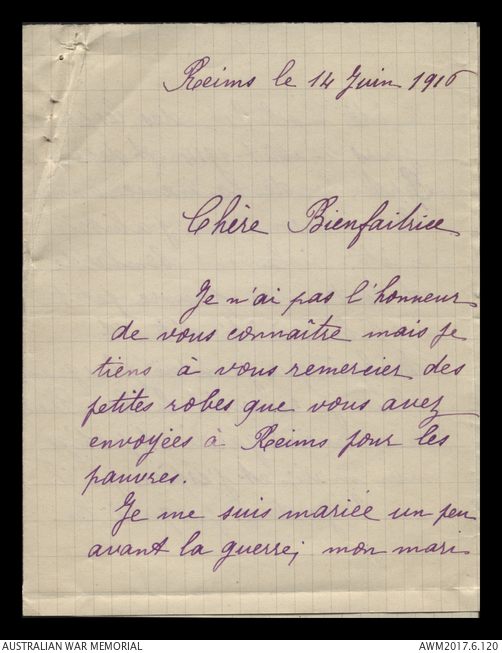 Reims le 14 Juin 1916
Chère Bienfaitrice
Je n'ai pas l'honneur
de vous connaître mais je
tiens à vous remercier des
petites robes que vous avez
envoyées à Reims pour les
pauvres.
Je me suis mariée un peu
avant la guerre; mon mari
AUSTRALIAN WAR MEMORIAL
AWM2017.6.120